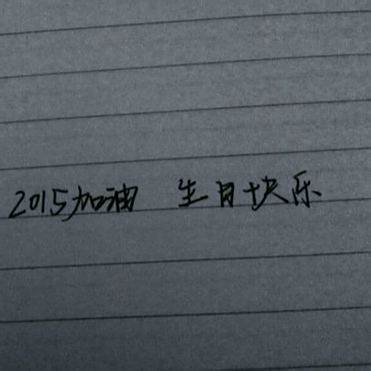 2015加油 生日快乐